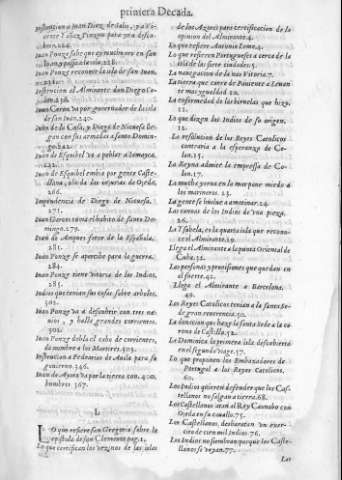 primera Decada.
Instruction a Juan Diez de Solis, y a Vi-
cente Yañez Pinçon para yr a descu-
Juan Ponze sabe que ay mucho oro en san
Juan Ponze reconoce la isla de san Juan.
Instrucion al Almirante don Diego Co-
lon.
Juan Ceron va por gouernador de la isla
de san Juan. 240.
Juan de la Cosa, y Diego de Nicuesa lle-
gan con sus armadas a santo Domin-
go.
Juan de Esquibel va a poblar a Iamayca
Juan de Esquibel embia por gente Caste-
llana,
266.
Impaciencia de Diego de Nicuesa.
271.
Juan Garces toma el habito de santo Do-
mingo. 279.
Juan de Ampues fator de la Española.
281.
Juan Ponze se apercibe para la guerra.
284.
Juan Ponze tiene vitoria de los Indios.
285.
Indios que tenian sus casas sobre arboles.
302.
Juan Ponze va a descubrir con tres na-
uios, y halla grandes corrientes.
302.
Juan Ponze dobla el cabo de corrientes,
da nombre a los Martires. 303.
Instrucion a Pedrarias de Auila para su
gouierno. 346.
Juan de Ayora va por la tierra con 400.
hombres 367.
L
LO que refiere san Gregorio sobre la
epistola de san Clemente pag. 1.
Lo que certifican los vezinos de las islas
de los Açores para certificacion de la
opinion del Almirante 4.
Lo que refiere Antonio Leme. 4.
Lo que refieren Portugueses a cerca de la
isla de las siete ciudades 5.
La nauegacion de la nao Vitoria 7.
La tierra que corre de Poniente a Leuan-
te mas ygualdad
La enfermedad de las biruelas que hizo.
12.
Lo que dizen los Indios de su origen.
12.
La resolucion de los Reyes Catolicos
contraria a la esperança de Co-
lon. 15.
La Reyna admite la empressa de Co-
lon. 17.
La mucha yerua en la mar pone miedo a
los marineros. 23.
La gente se buelue a amotinar. 24.
Las canoas de los Indios de vna pieça.
26.
La Isabela, es la quarta isla que recono-
ce el Almirante. 29
Llega el Almirante a la punta Oriental de
Cuba. 31.
Las personas y prouisiones que quedan en
el fuerte. 42.
Llega el Almirante a Barcelona.
49.
Los Reyes Catolicos tenian a la santa Se-
de gran reuerencia. 50.
La donacion que haze la santa Sede a la co
rona de Castilla. 52.
La Dominica la primera isla descubierta
en el segundo viage. 57.
Lo que proponen los Embaxadores de
Portugal a los Reyes Catolicos.
60.
Los Indios quieren defender que los Cas-
tellanos no salgan a tierra. 68.
Los Castellanos atan al Rey Caonabo con
Ojeda en su cauallo. 75.
Los Castellanos desbaratan vn exer-
cito de cien mil Indios. 76.
Los Indios no siembran porque los Caste-
llanos se vayan. 77.